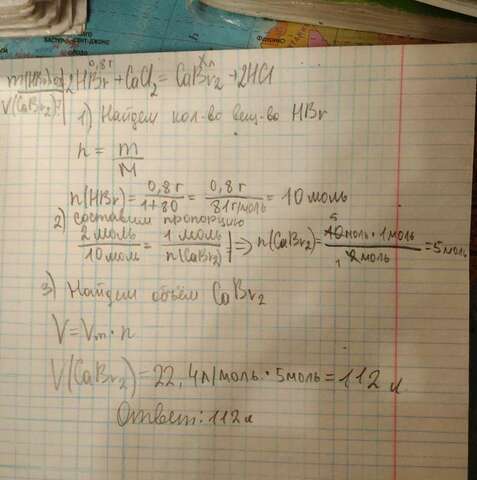 0,8г Xл
m(HBr)=0,8г 2HBr + CaCl₂ = CaBr₂ + 2HCl
V(CaBr₂)?
1) Найдем кол-во вещ-во HBr
n = m/M
n(HBr) = 0,8г/1+80 = 0,8г/81г/моль = 10 моль
2) составим пропорцию
2 моль/10 мол = 1 моль/n(CaBr₂) ⇒ n(CaBr₂) = 10 моль · 1 моль/2 моль = 5 моль
3) Найдем объём CaBr₂
V = Vm · n
V(CaBr₂) = 22,4л/моль · 5 моль = 112 л
Ответ: 112 л